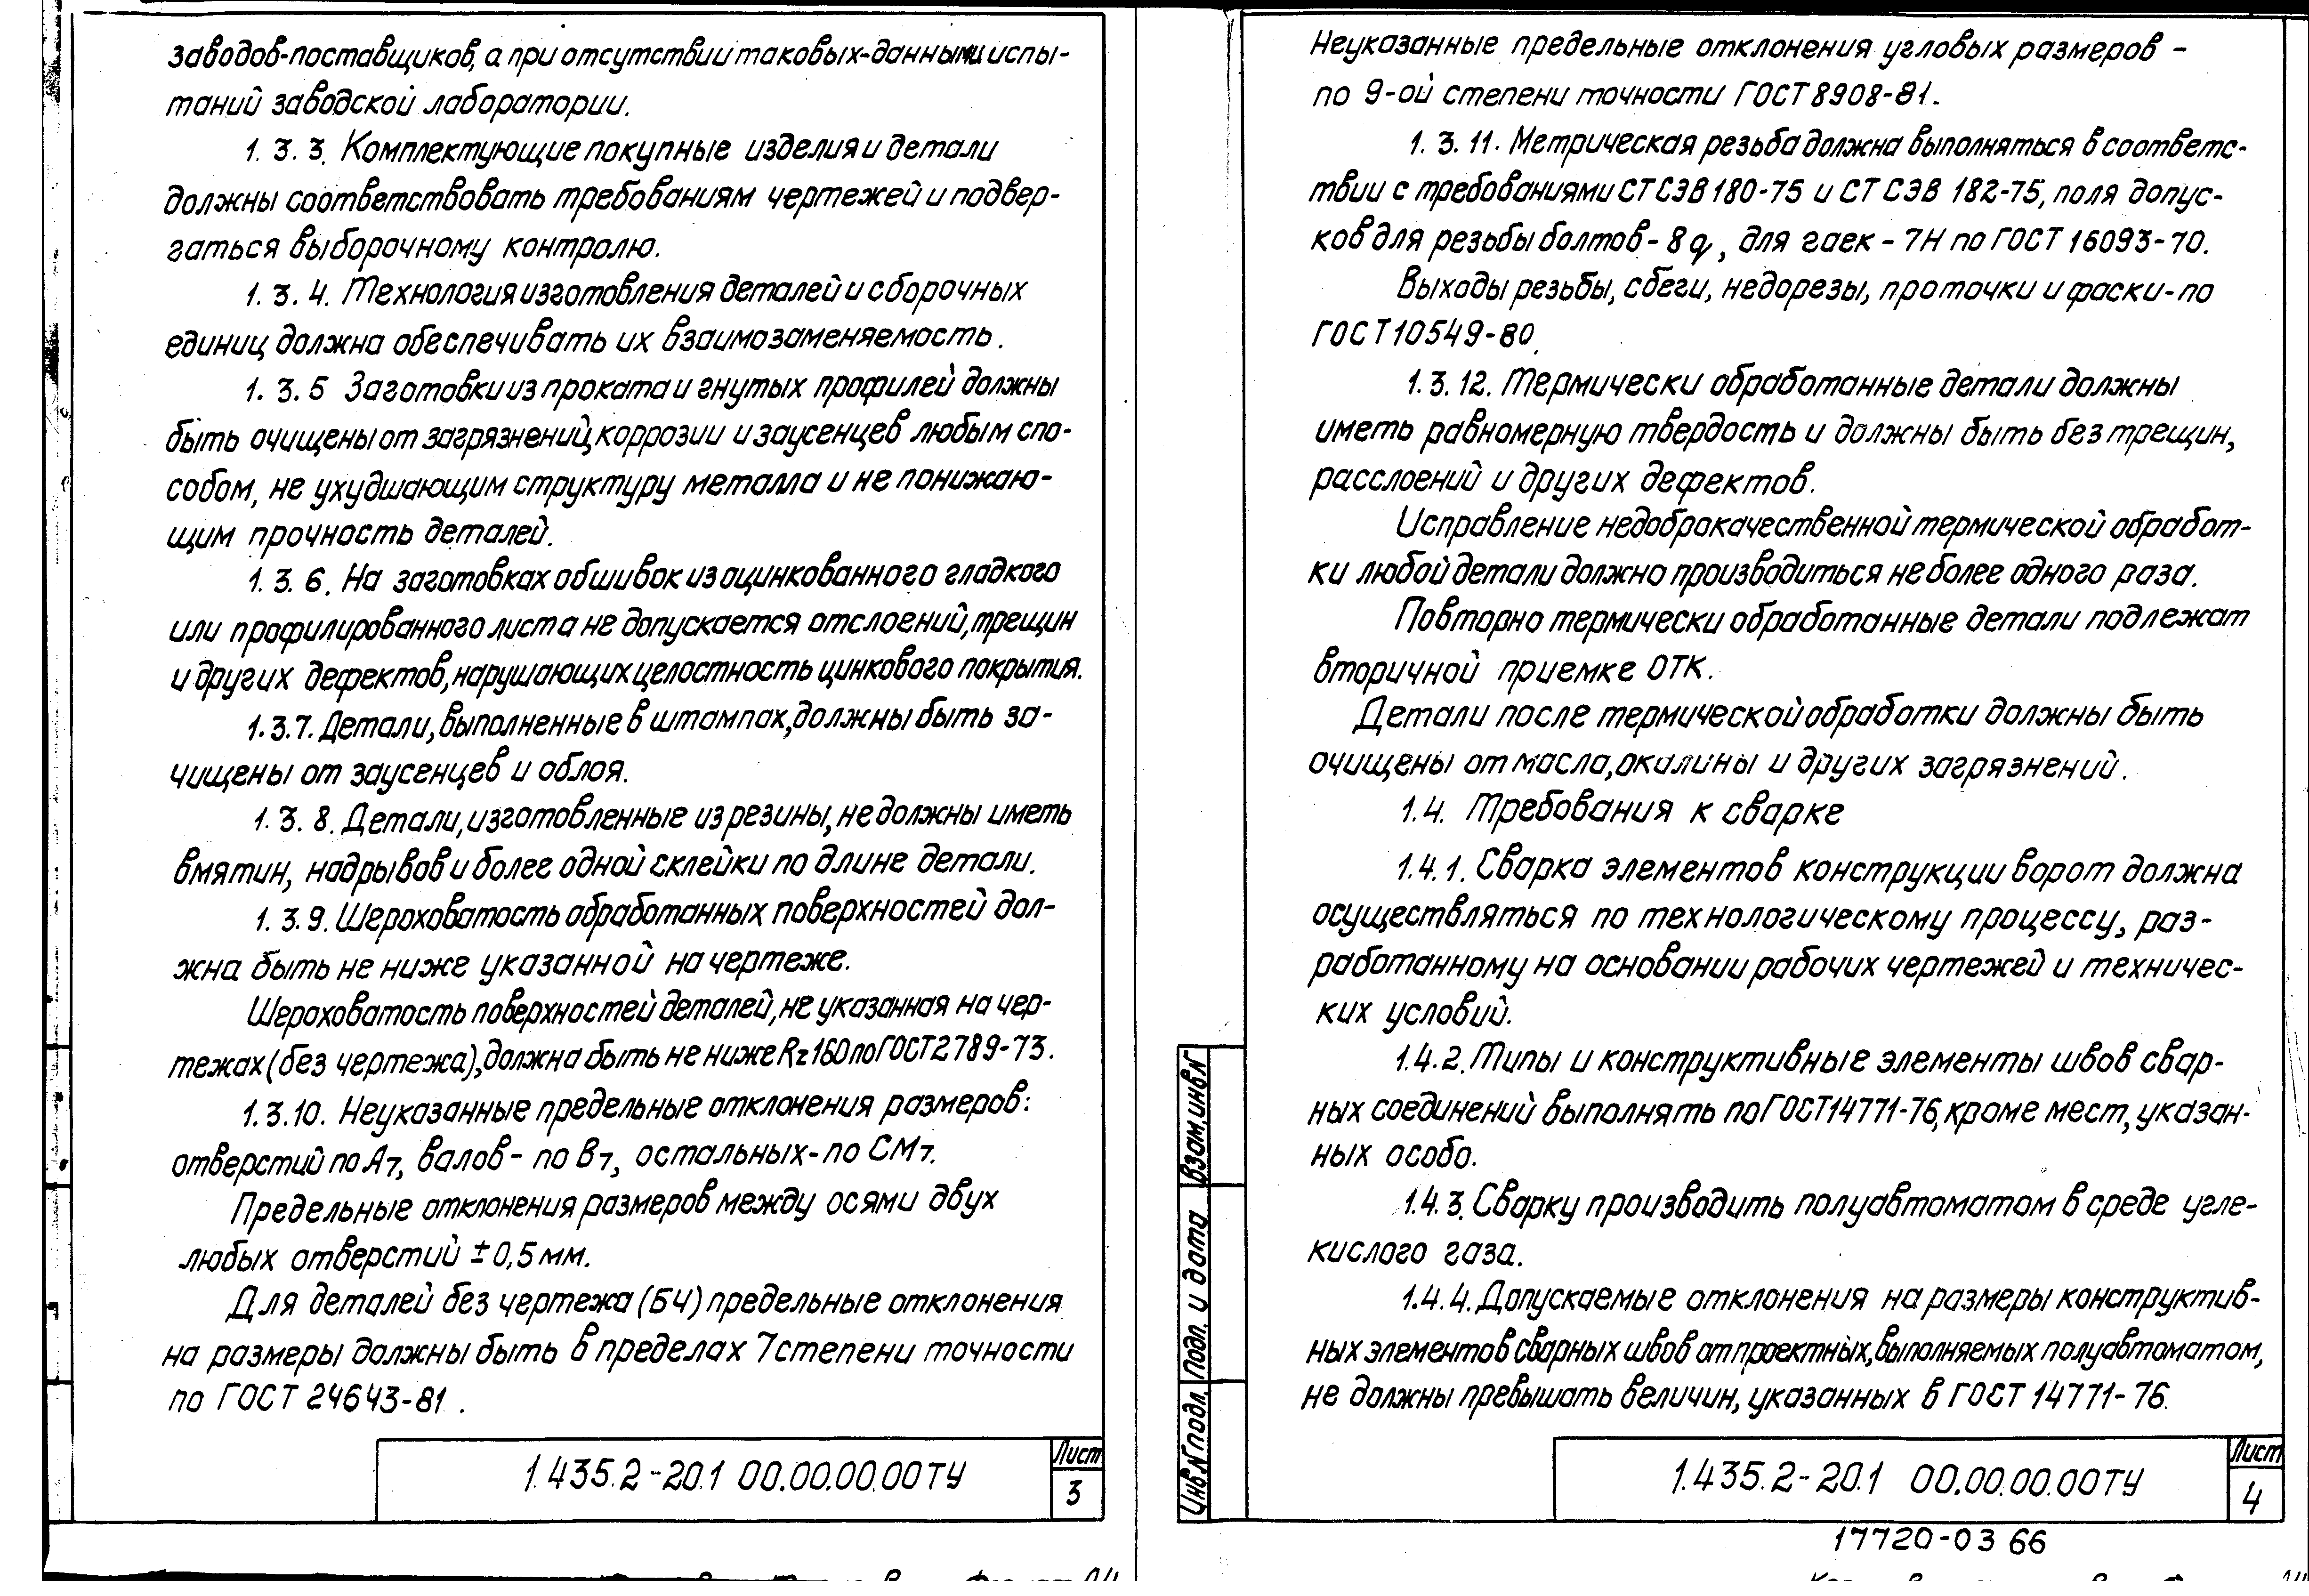 заводов-поставщиков, а при отсутствии таковых-данными испы-
таний заводской лаборатории.
1.3.3. Комплектующие покупные изделия и детали
должны соответствовать требованиям чертежей и подвер-
гаться выборочному контролю.
1.3.4. Технология изготовления деталей и сборочных
единиц должна обеспечивать их взаимозаменяемость.
1.3.5 Заготовки из проката и гнутых профилей должны
быть очищены от загрязнений, коррозии и заусенцев любым спо-
собом, не ухудшающим структуру металла и не понижаю-
щим прочность деталей.
1.3.6. На заготовках обшивок из оцинкованного гладкого
или профилированного листа не допускается отслоений, трещин
и других дефектов, нарушающих целостность цинкового покрытия.
1.3.7. Детали, выполненные в штампах, должны быть за-
чищены от заусенцев и облоя.
1.3.8. Детали, изготовленные из резины, не должны иметь
вмятин, надрывов и более одной склейки по длине детали.
1.3.9. Шероховатость обработанных поверхностей дол-
жна быть не ниже указанной на чертеже.
Шероховатость поверхностей деталей, не указанная на чер-
тежах (без чертежа), должна быть не ниже Rz160 по ГОСТ 2789-73.
1.3.10. Неуказанные предельные отклонения размеров:
отверстий по А7, валов - по В7, остальных - по СМ7.
Предельные отклонения размеров между осями двух
любых отверстий ±0,5 мм.
Для деталей без чертежа (БЧ) предельные отклонения
на размеры должны быть в пределах 7 степени точности
по ГОСТ 24643-81.
1.435.2-20.1 00.00.00.00ТУ
Лист
3
Неуказанные предельные отклонения угловых размеров -
по 9-ой степени точности ГОСТ 8908-81.
1.3.11. Метрическая резьба должна выполняться в соответс-
твии с требованиями СТ СЭВ 180-75 и СТ СЭВ 182-75, поля допус-
ков для резьбы болтов - 8q, для гаек - 7Н по ГОСТ 16093-70.
Выходы резьбы, сбеги, недорезы, проточки и фаски-по
ГОСТ 10549-80.
1.3.12. Термически обработанные детали должны
иметь равномерную твердость и должны быть без трещин,
расслоений и других дефектов.
Исправление недоброкачественной термической обработ-
ки любой детали должно производиться не более одного раза.
Повторно термически обработанные детали подлежат
вторичной приемке ОТК.
Детали после термической обработки должны быть
очищены от масла, окалины и других загрязнений.
1.4. Требования к сварке
1.4.1. Сварка элементов конструкции ворот должна
осуществляться по технологическому процессу, раз-
работанному на основании рабочих чертежей и техничес-
ких условий.
1.4.2. Типы и конструктивные элементы швов свар-
ных соединений выполнять по ГОСТ 14771-76, кроме мест, указан-
ных особо.
1.4.3. Сварку производить полуавтоматом в среде угле-
кислого газа.
1.4.4. Допускаемые отклонения на размеры конструктив-
ных элементов сварных швов от проектных, выполняемых полуавтоматом,
не должны превышать величин, указанных в ГОСТ 14771-76.
Взам. инв N
Подп. и дата
Инв. N подл.
1.435.2-20.1 00.00.00.00ТУ
Лист
4
17720-03 66